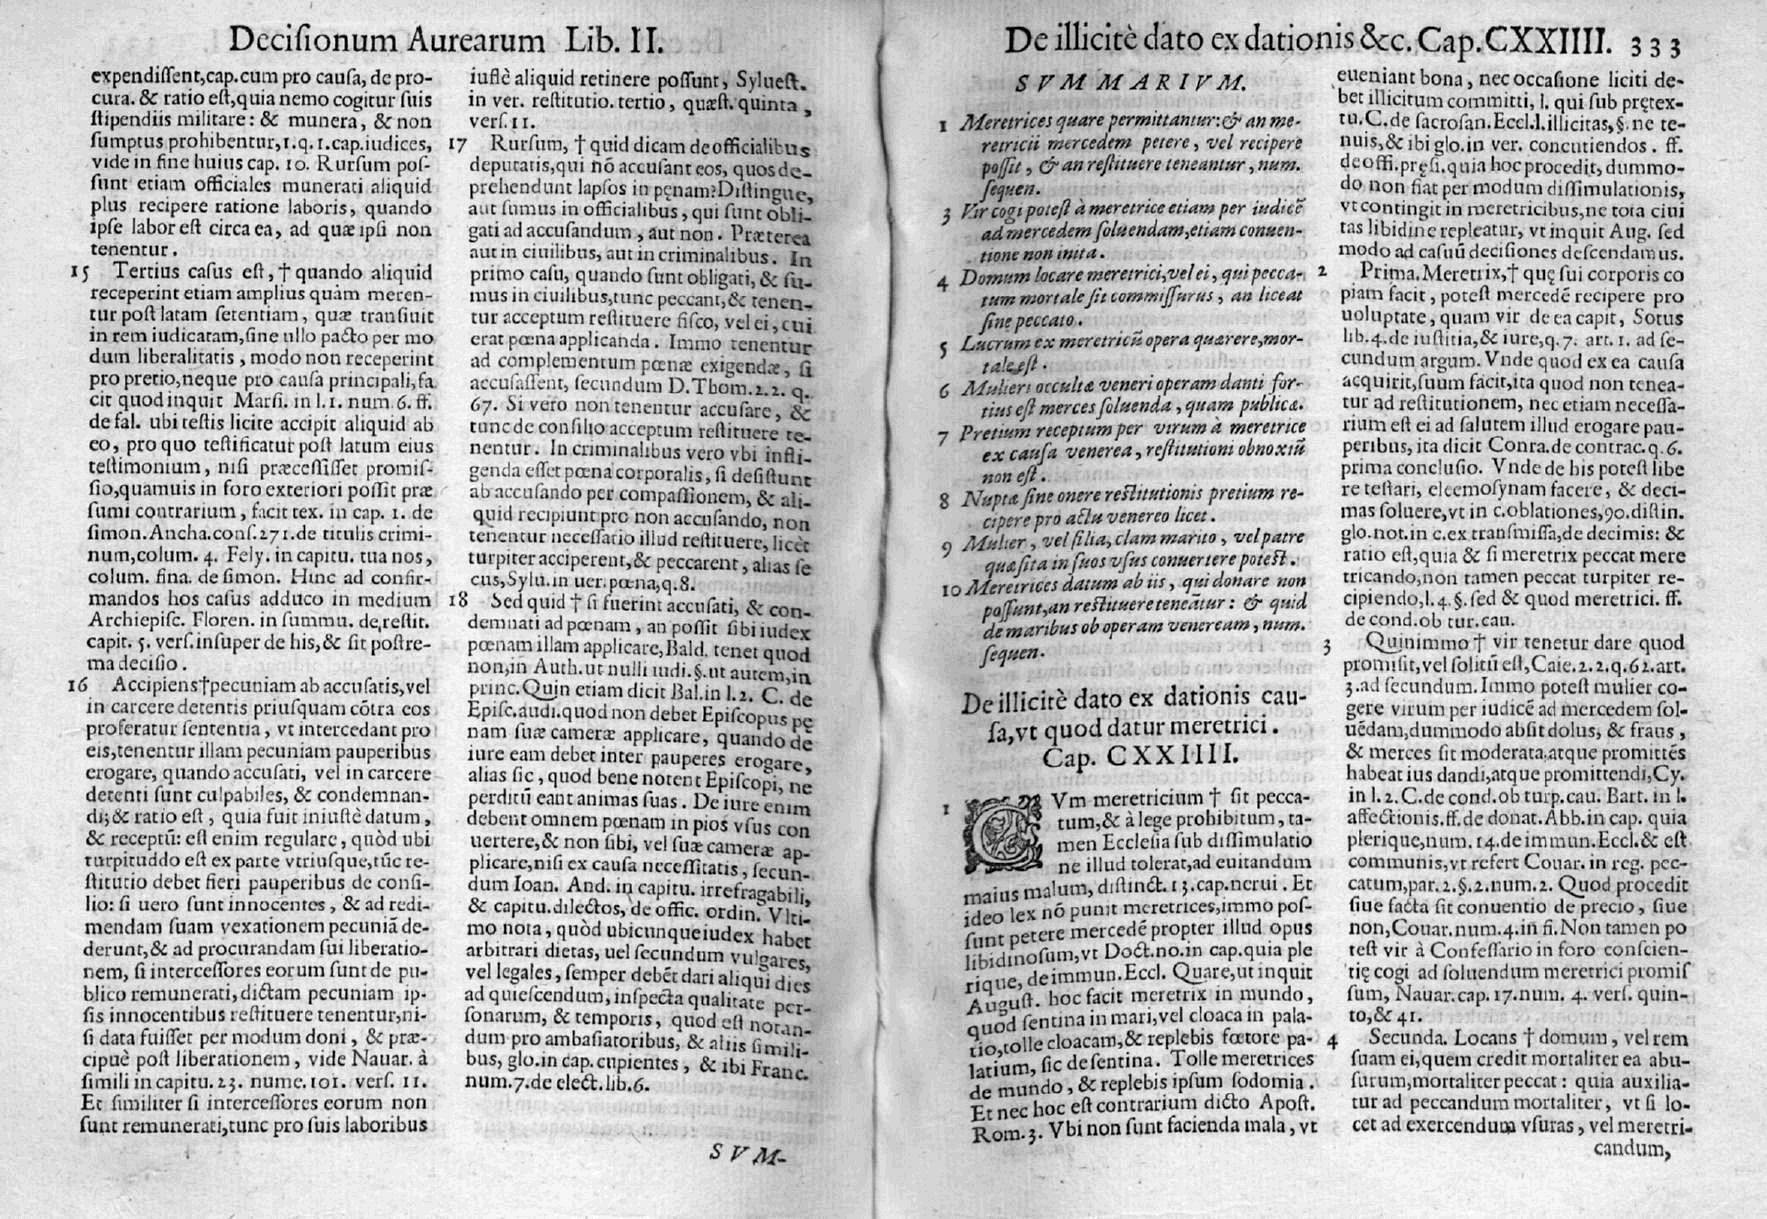 Decisionum Aurearum Lib. II.
expendissent,cap.cum pro causa, de pro-
cura. & ratio est,quia nemo cogitur suis
stipendiis militare: & munera, & non
sumptus prohibentur,1.q.1.cap.iudices,
vide in fine huius cap. 10. Rursum pos-
sunt etiam officiales munerati aliquid
plus recipere ratione laboris, quando
ipse labor est circa ea, ad quæ ipsi non
tenentur.
15 Tertius casus est, † quando aliquid
receperint etiam amplius quàm meren-
tur post latam setentiam, quæ transiuit
in rem iudicatam,sine ullo pacto per mo
dum liberalitatis, modo non receperint
pro pretio,neque pro causa principali,fa
cit quod inquit Marsi. in l.1. num.6. ff.
de fal. ubi testis licite accipit aliquid ab
eo, pro quo testificatur post latum eius
testimonium, nisi præcessisset promis-
sio,quamuis in foro exteriori possit præ
sumi contrarium, facit tex. in cap. 1. de
simon.Ancha.cons.271.de titulis crimi-
num,colum. 4. Fely. in capitu. tua nos,
colum. fina. de simon. Hinc ad confir-
mandos hos casus adduco in medium
Archiepisc. Floren. in summu. de,restit.
capit. 5. vers.insuper de his,& sit postre-
ma decisio.
16 Accipiens†pecuniam ab accusatis,vel
in carcere detentis priusquam cõtra eos
proferatur sententia, vt intercedant pro
eis,tenentur illam pecuniam pauperibus
erogare, quando accusati, vel in carcere
detenti sunt culpabiles, & condemnan-
di;& ratio est, quia fuit iniustè datum,
& receptũ: est enim regulare, quòd ubi
turpituddo est ex parte vtriusque,tũc re-
stitutio debet fieri pauperibus de consi-
lio: si uero sunt innocentes, & ad redi-
mendam suam vexationem pecuniã de-
derunt,& ad procurandam sui liberatio-
nem, si intercessores eorum sunt de pu-
blico remunerati,dictam pecuniam ip-
sis innocentibus restituere tenentur,ni-
si data fuisset per modum doni, & præ-
cipuè post liberationem, vide Nauar. à
simili in capitu. 23. nume. 101. vers. 11.
Et similiter si intercessores eorum non
sunt remunerati,tunc pro suis laboribus
iustè aliquid retinere possunt, Syluest.
in ver. restitutio. tertio, quæst. quinta,
vers.11.
17 Rursum, † quid dicam de officialibus
deputatis,qui nõ accusant eos, quos de-
prehendunt lapsos in pęnam?Distingue,
aut sumus in officialibus, qui sunt obli-
gati ad accusandum, aut non. Præterea
aut in ciuilibus, aut in criminalibus. In
primo casu, quando sunt obligati, & su-
mus in ciuilibus,tunc peccant,& tenen-
tur acceptum restituere fisco, vel ei, cui
erat pœna applicanda. Immo tenentur
ad complementum pœnæ exigendæ, si
accusassent, secundum D.Thom.2.2. q.
67. Si vero non tenentur accusare, &
tunc de consilio acceptum restituere te-
nentur. In criminalibus vero vbi infli-
genda esset pœna corporalis, si desistunt
ab accusando per compassionem, & ali-
quid recipiunt pro non accusando, non
tenentur necessatio illud restituere, licèt
turpiter acciperent,& peccarent, alias se
cus,Sylu.in uer. pœna,q.8.
18 Sed quid † si fuerint accusati, & con-
demnati ad pœnam, an possit sibi iudex
pœnam illam applicare,Bald. tenet quod
non,in Auth.ut nulli iudi.§.ut autem,in
princ. Quin etiam dicit Bal.in l.2. C. de
Episc.audi.quod non debet Episcopus pę
nam suæ cameræ applicare, quando de
iure eam debet inter pauperes erogare,
alias sic, quod bene notent Episcopi, ne
perditũ eant animas suas. De iure enim
debent omnem pœnam in pios vsus con
uertere,& non sibi, vel suæ cameræ ap-
plicare,nisi ex causa necessitatis, secun-
dum Ioan. And. in capitu. irrefragabili,
& capitu.dilectos, de offic. ordin. Vlti-
mo nota, quòd ubicunque iudex habet
arbitrari dietas, uel secundum vulgares,
vel legales, semper debẽt dari aliqui dies
ad quiescendum, inspecta qualitate per-
sonarum, & temporis, quod est notan-
dum pro ambasiatoribus, & aliis simili-
bus, glo.in cap.cupientes, & ibi Franc.
num.7.de elect.lib.6.
SVM-
De illicitè dato ex dationis &c. Cap. CXXIIII. 333
SVMMARIVM.
1 Meretrices quare permittantur:& an me-
retricii mercedem petere, vel recipere
possit, & an restituere teneantur, num.
sequen.
3 Vir cogi potest à meretrice etiam per iudicẽ
ad mercedem soluendam,etiam conuen-
tione non inita.
4 Domum locare meretrici,vel ei, qui pecca-
tum mortale sit commissurus, an liceat
sine peccato.
5 Lucrum ex meretricũ opera quærere,mor-
tale est.
6 Mulieri occultæ veneri operam danti for-
tius est merces soluenda, quam publicæ.
7 Pretium receptum per virum à meretrice
ex causa venerea, restitutioni obnoxiũ
non est.
8 Nuptæ sine onere restitutionis pretium re-
cipere pro actu venereo licet.
9 Mulier, vel filia, clam marito, vel patre
quæsita in suos vsus conuertere potest.
10 Meretrices datum ab iis, qui donare non
possunt,an restituere teneãtur: & quid
de maribus ob operam veneream, num.
sequen.
De illicitè dato ex dationis cau-
sa,vt quod datur meretrici.
Cap. CXXIIII.
1 CVm meretricium † sit pecca-
tum,& à lege prohibitum, ta-
men Ecclesia sub dissimulatio
ne illud tolerat,ad euitandum
maius malum, distinct.13.cap.nerui. Et
ideo lex nõ punit meretrices,immo pos-
sunt petere mercedẽ propter illud opus
libidinosum,vt Doct.no.in cap.quia ple
rique, de immun.Eccl. Quare,ut inquit
August. hoc facit meretrix in mundo,
quod sentina in mari,vel cloaca in pala-
tio,tolle cloacam,& replebis fœtore pa-
latium, sic de sentina. Tolle meretrices
de mundo, & replebis ipsum sodomia.
Et nec hoc est contrarium dicto Apost.
Rom.3. Vbi non sunt facienda mala, vt
eueniant bona, nec occasione liciti de-
bet illicitum committi, l. qui sub prętex-
tu. C.de sacrosan.Eccl.l.illicitas,§.ne te-
nuis,& ibi glo.in ver. concutiendos. ff.
de offi.pręsi.quia hoc procedit, dummo-
do non fiat per modum dissimulationis,
vt contingit in meretricibus,ne tota ciui
tas libidine repleatur, vt inquit Aug. sed
modo ad casuũ decisiones descendamus.
2 Prima. Meretrix,† quę sui corporis co
piam facit, potest mercedẽ recipere pro
uoluptate, quam vir de ea capit, Sotus
lib.4.de iustitia,& iure,q.7. art.1. ad se-
cundum argum. Vnde quod ex ea causa
acquirit,suum facit,ita quod non tenea-
tur ad restitutionem, nec etiam necessa-
rium est ei ad salutem illud erogare pau-
peribus, ita dicit Conra.de contrac.q.6.
prima conclusio. Vnde de his potest libe
re testari, eleemosynam facere, & deci-
mas soluere,vt in c.oblationes,90.distin.
glo.not.in c.ex transmissa,de decimis: &
ratio est,quia & si meretrix peccat mere
tricando,non tamen peccat turpiter re-
cipiendo,l.4.§.sed & quod meretrici. ff.
de cond.ob tur.cau.
3 Quinimmo † vir tenetur dare quod
promisit,vel solitũ est, Caie.2.2.q.62.art.
3.ad secundum. Immo potest mulier co-
gere virum per iudicẽ ad mercedem sol-
uẽdam,dummodo absit dolus, & fraus,
& merces sit moderata,atque promittẽs
habeat ius dandi,atque promittendi,Cy.
in l.2. C.de cond.ob turp.cau. Bart. in l.
affectionis.ff.de donat.Abb.in cap. quia
plerique,num.14.de immun.Eccl.& est
communis,vt refert Couar. in reg. pec-
catum,par.2.§.2.num.2. Quod procedit
siue facta sit conuentio de precio, siue
non,Couar.num.4.in fi.Non tamen po
test vir à Confessario in foro conscien-
tię cogi ad soluendum meretrici promis
sum, Nauar.cap.17.num. 4. vers. quin-
to,& 41.
4 Secunda. Locans † domum, vel rem
suam ei,quem credit mortaliter ea abu-
surum,mortaliter peccat: quia auxilia-
tur ad peccandum mortaliter, vt si lo-
cet ad exercendum vsuras, vel meretri-
candum,